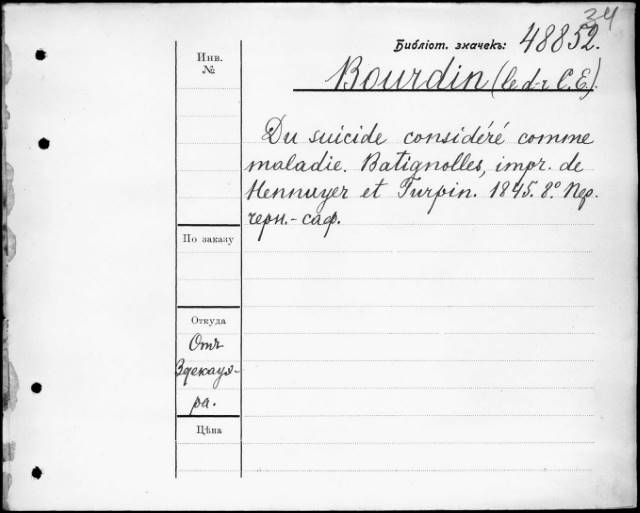 34
Библіот. значекъ: 48852.
Инв. №
Bourdin (le d-r C. E.).
Du suicide considéré comme
maladie. Batignolles, impr. de
Hennuyer et Turpin. 1845. 8º. Пер.
черн.-саф.
По заказу
Откуда
Отъ
Здекауе-
ра.
Цѣна